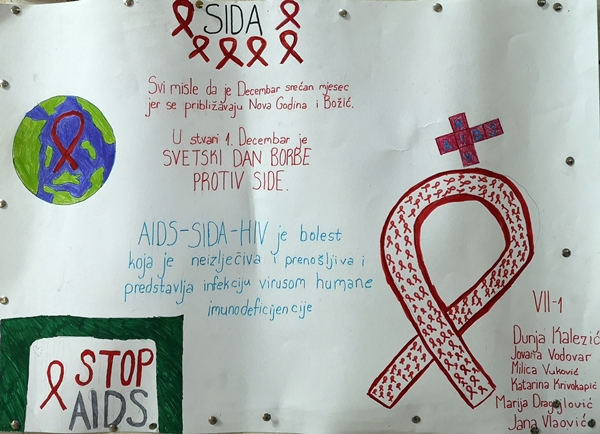 SIDA
Svi misle da je Decembar srećan mjesec
jer se približavaju Nova Godina i Božić.
U stvari 1. Decembar je
SVETSKI DAN BORBE
PROTIV SIDE.
AIDS-SIDA-HIV je bolest
koja je neizlječiva i prenošljiva i
predstavlja infekciju virusom humane
imunodeficijencije
STOP
AIDS
VII-1
Dunja Kalezić
Jovana Vodovar
Milica Vuković
Katarina Krivokapić
Marija Dragojlović
Jana Vlaović